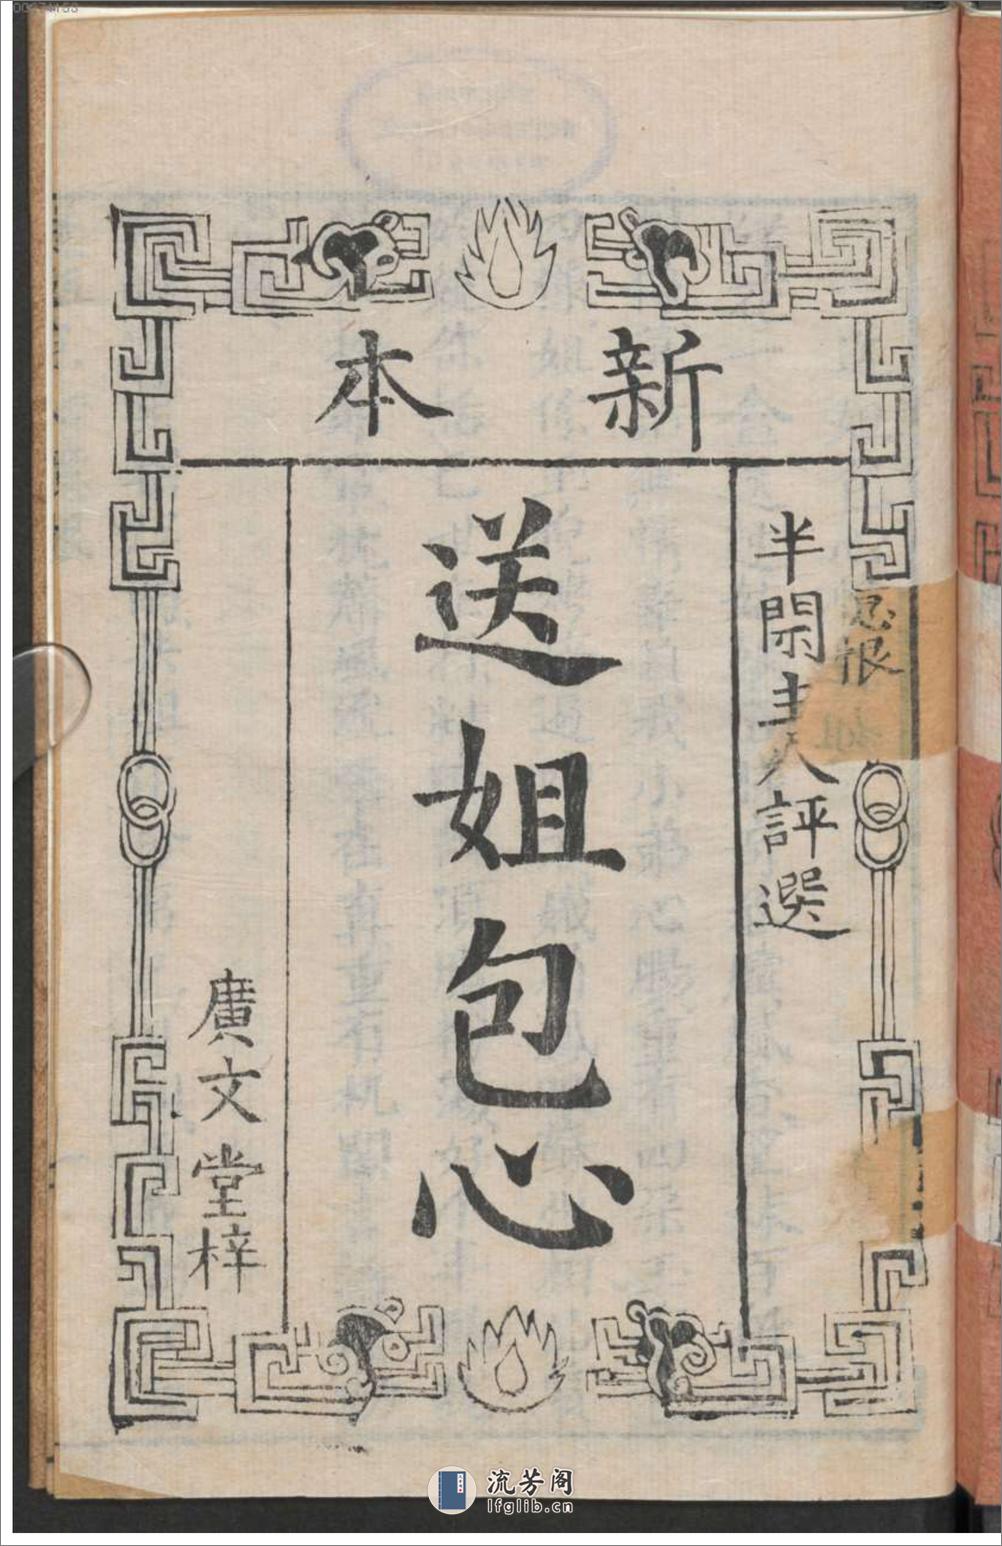 新本
半閑主人評選
送姐包心
廣文堂梓
流芳阁
lfglib.cn